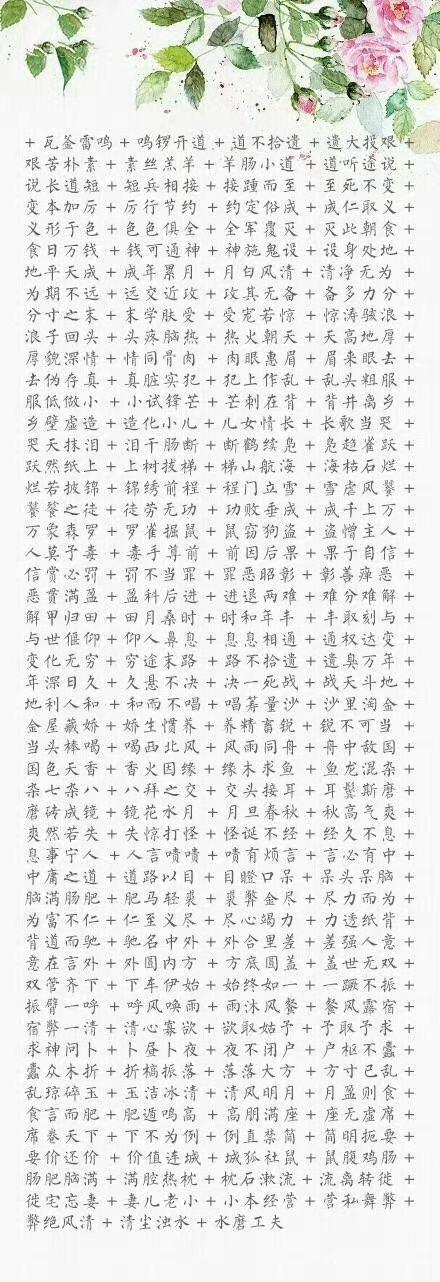 + 瓦釜雷鸣 + 鸣锣开道 + 道不拾遗 + 遗大投艰 +
艰苦朴素 + 素丝羔羊 + 羊肠小道 + 道听途说 +
说长道短 + 短兵相接 + 接踵而至 + 至死不变 +
变本加厉 + 厉行节约 + 约定俗成 + 成仁取义 +
义形于色 + 色色俱全 + 全军覆灭 + 灭此朝食 +
食日万钱 + 钱可通神 + 神施鬼设 + 设身处地 +
地平天成 + 成年累月 + 月白风清 + 清净无为 +
为期不远 + 远交近攻 + 攻其无备 + 备多力分 +
分寸之末 + 末学肤受 + 受宠若惊 + 惊涛骇浪 +
浪子回头 + 头疼脑热 + 热火朝天 + 天高地厚 +
厚貌深情 + 情同骨肉 + 肉眼惠眉 + 眉来眼去 +
去伪存真 + 真脏实犯 + 犯上作乱 + 乱头粗服 +
服低做小 + 小试锋芒 + 芒刺在背 + 背井离乡 +
乡壁虚造 + 造化小儿 + 儿女情长 + 长歌当哭 +
哭天抹泪 + 泪干肠断 + 断鹤续凫 + 凫趋雀跃 +
跃然纸上 + 上树拔梯 + 梯山航海 + 海枯石烂 +
烂若披锦 + 锦绣前程 + 程门立雪 + 雪虐风饕 +
饕餮之徒 + 徒劳无功 + 功败垂成 + 成千上万 +
万象森罗 + 罗雀掘鼠 + 鼠窃狗盗 + 盗憎主人 +
人莫予毒 + 毒手尊前 + 前因后果 + 果于自信 +
信赏必罚 + 罚不当罪 + 罪恶昭彰 + 彰善瘅恶 +
恶贯满盈 + 盈科后进 + 进退两难 + 难分难解 +
解甲归田 + 田月桑时 + 时和年丰 + 丰取刻与 +
与世偃仰 + 仰人鼻息 + 息息相通 + 通权达变 +
变化无穷 + 穷途末路 + 路不拾遗 + 遗臭万年 +
年深日久 + 久悬不决 + 决一死战 + 战天斗地 +
地利人和 + 和而不唱 + 唱筹量沙 + 沙里淘金 +
金屋藏娇 + 娇生惯养 + 养精蓄锐 + 锐不可当 +
当头棒喝 + 喝西北风 + 风雨同舟 + 舟中敌国 +
国色天香 + 香火因缘 + 缘木求鱼 + 鱼龙混杂 +
杂七杂八 + 八拜之交 + 交头接耳 + 耳鬓斯磨 +
磨砖成镜 + 镜花水月 + 月旦春秋 + 秋高气爽 +
爽然若失 + 失惊打怪 + 怪诞不经 + 经久不息 +
息事宁人 + 人言啧啧 + 啧有烦言 + 言必有中 +
中庸之道 + 道路以目 + 目瞪口呆 + 呆头呆脑 +
脑满肠肥 + 肥马轻裘 + 裘弊金尽 + 尽力而为 +
为富不仁 + 仁至义尽 + 尽心竭力 + 力透纸背 +
背道而驰 + 驰名中外 + 外合里差 + 差强人意 +
意在言外 + 外圆内方 + 方底圆盖 + 盖世无双 +
双管齐下 + 下车伊始 + 始终如一 + 一蹶不振 +
振臂一呼 + 呼风唤雨 + 雨沐风餐 + 餐风露宿 +
宿弊一清 + 清心寡欲 + 欲取姑予 + 予取予求 +
求神问卜 + 卜昼卜夜 + 夜不闭户 + 户枢不蠹 +
蠹众木折 + 折槁振落 + 落落大方 + 方寸已乱 +
乱琼碎玉 + 玉洁冰清 + 清风明月 + 月盈则食 +
食言而肥 + 肥遁鸣高 + 高朋满座 + 座无虚席 +
席卷天下 + 下不为例 + 例直禁简 + 简明扼要 +
要价还价 + 价值连城 + 城狐社鼠 + 鼠腹鸡肠 +
肠肥脑满 + 满腔热枕 + 枕石漱流 + 流离转徙 +
徙宅忘妻 + 妻儿老小 + 小本经营 + 营私舞弊 +
弊绝风清 + 清尘浊水 + 水磨工夫